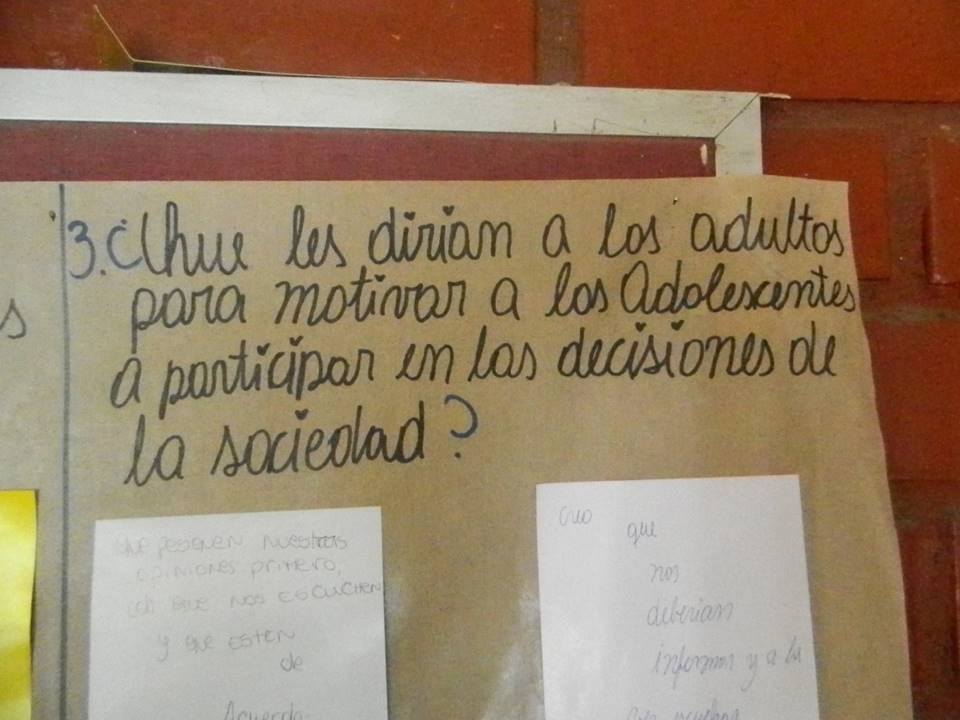 s
3. ¿Que les dirian a los adultos
para motivar a los Adolescentes
a participar en las decisiones de
la sociedad?
que NUESTRAS
OPINIONES PRIMERO,
QUE NOS ESCUCHEN
y QUE ESTEN
de
Acuerdo
Creo
que
nos
deberian
informar y a la